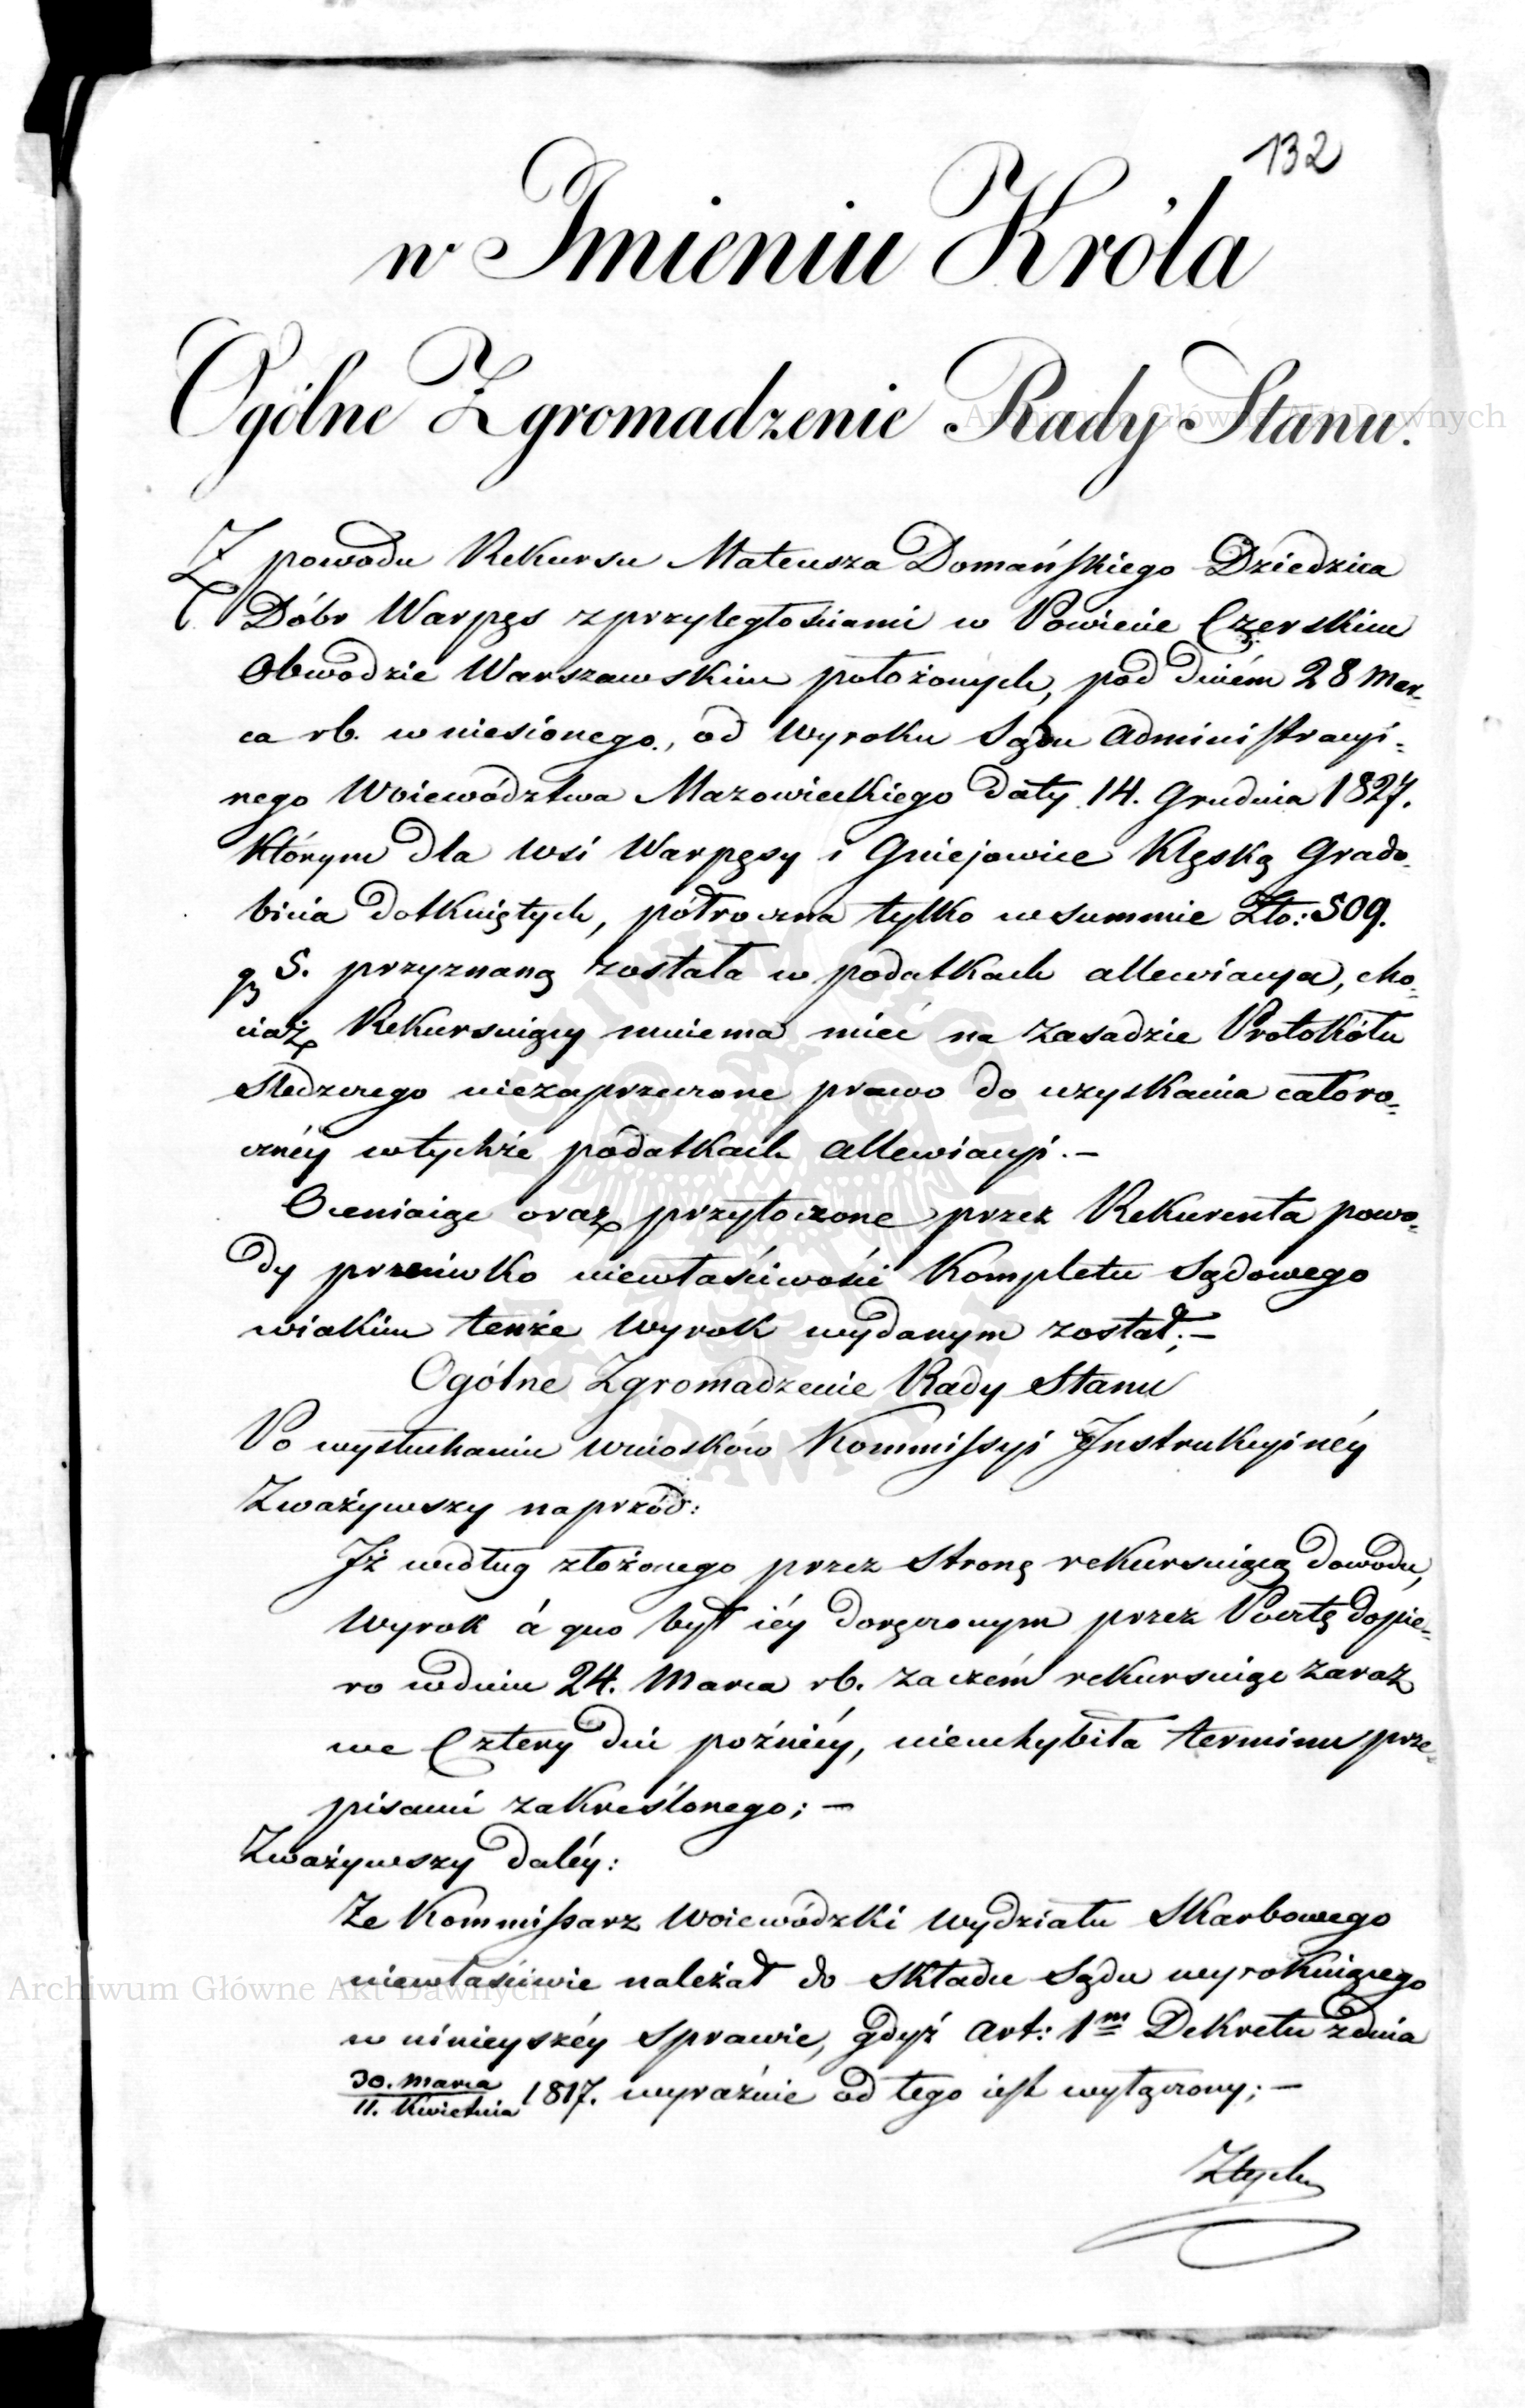 132
w Imieniu Króla
Ogólne Zgromadzenie Rady Stanu.
Z powodu Rekursu Mateusza Domańskiego Dziedzica
Dóbr Warpęs z przyległościami w Powiecie Czerskim
Obwodzie Warszawskim położonych, pod dniém 28 Mar-
ca rb. wniesionego, od Wyroku Sądu Administracyi-
nego Woiewództwa Mazowieckiego daty 14. Grudnia 1827.
którym dla wsi Warpęsy i Gniejowice Klęską Grado-
bicia dotkniętych, półroczna tylko w summie Złp: 509.
gr 5. przyznaną została w podatkach allewiacya, cho-
ciaż Rekursuiący mniema mieć na zasadzie Protokółu
śledczego niezaprzeczone prawo do uzyskania całoro-
cznéy w tychże podatkach allewiacyi. —
Oceniaiąc oraz przytoczone przez Rekurenta powo-
dy przeciwko niewłaściwości Kompletu Sądowego
w iakim tenże Wyrok wydanym został; —
Ogólne Zgromadzenie Rady Stanu
Po wysłuchaniu wniosków Kommissyi Instrukcyinéy
Zważywszy naprzód:
Iż według złożonego przez Stronę rekursuiącą dowodu,
Wyrok á quo był iéy doręczonym przez Pocztę dopie-
ro w dniu 24. Marca rb. zaczém rekursuiąc zaraz
we Cztery dni poźniéy, nieuchybiła terminu prze-
pisami zakreślonego; —
Zważywszy daléy:
Że Kommissarz Woiewódzki Wydziału Skarbowego
niewłaściwie należał do składu Sądu wyrokuiącego
w ninieyszéy sprawie, gdyż Art: 1m Dekretu z dnia
30. Marca
11. Kwietnia 1817. wyraźnie od tego iest wyłączony; —
Z tych
Archiwum Główne Akt Dawnych
Archiwum Główne Akt Dawnych